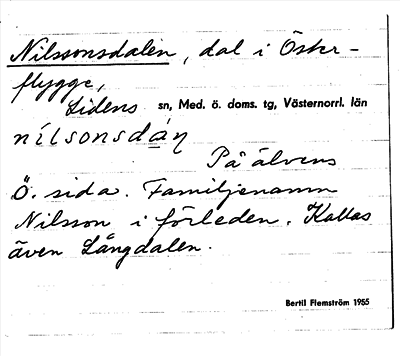 Nilssonsdalen, dal i Öster-
flygge,
Lidens sn, Med. ö. doms. tg, Västernorrl. län
nílsonsdàn
På älvens
Ö. sida. Familjenamn
Nilsson i förleden. Kallas
även Långdalen.
Bertil Flemström 1955